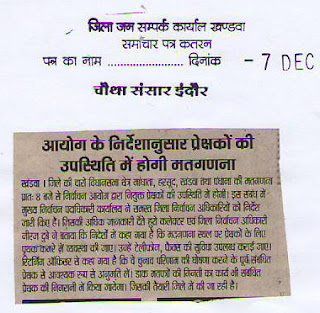 जिला जन सम्पर्क कार्याल खण्डवा
समाचार पत्र कतरन
पत्र का नाम ........................ दिनांक - 7 DEC
चौथा संसार इंदौर
आयोग के निर्देशानुसार प्रेक्षकों की
उपस्थिति में होगी मतगणना
खंडवा। जिले की चारों विधानसभा क्षेत्र मांधाता, हरसूद, खंडवा तथा पंधाना की मतगणना
प्रातः 8 बजे से निर्वाचन आयोग द्वारा नियुक्त प्रेक्षकों की उपस्थिति में होगी। इस संबंध में
मुख्य निर्वाचन पदाधिकारी कार्यालय ने समस्त जिला निर्वाचन अधिकारियों को निर्देश
जारी किए है। जिसकी अधिक जानकारी देते हुये कलेक्टर एवं जिला निर्वाचन अधिकारी
नीरज दुबे ने बताया कि निर्देशों में कहा गया है कि मतगणना स्थल पर प्रेक्षकों के लिए
पृथक कमरे में व्यवस्था की जाए। उन्हें टेलीफोन, फैक्स की सुविधा उपलब्ध कराई जाए।
रिटर्निंग ऑफिसर से कहा गया है कि वे चुनाव परिणाम की घोषणा करने के पूर्व संबंधित
प्रेक्षक से आवश्यक रूप से अनुमति लें। डाक मतपत्रों की गिनती का कार्य भी संबंधित
प्रेक्षक की निगरानी में किया जायेगा। जिसकी तैयारी जिले में की जा रही है।